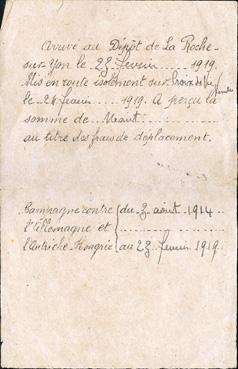 Arrivé au Dépôt de La Roche-
sur-Yon le 23 février 1919.
Mis en route isolément sur Croix de Vie
le 24 février 1919. A perçu la
somme de Néant
au titre des frais de déplacement.
Campagne contre du 3 août 1914
l'Allemagne et
l'Autriche-Hongrie au 23 février 1919.